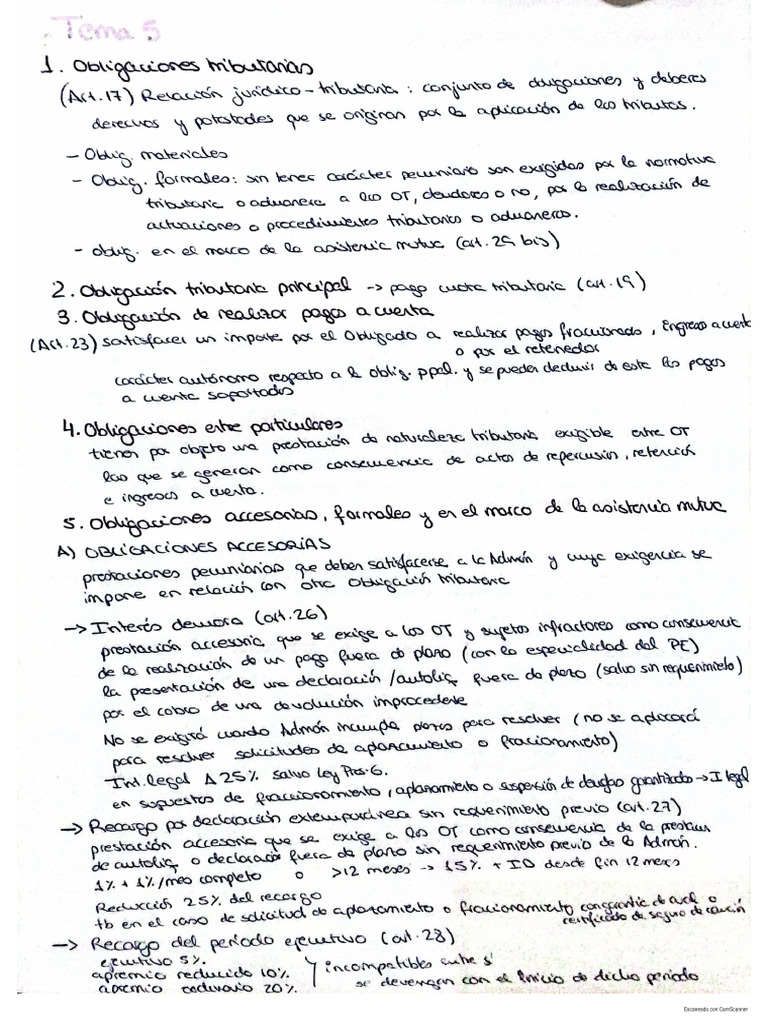 Tema 5
1. Obligaciones tributarias
(Art.17) Relación jurídico-tributaria: conjunto de obligaciones y deberes
derechos y potestades que se originan por la aplicación de los tributos.
- Oblig. materiales
- Oblig. formales: sin tener carácter pecuniario son exigidas por la normativa
tributaria o aduanera a los OT, deudores o no, por la realización de
actuaciones o procedimientos tributarios o aduaneros.
- oblig. en el marco de la asistencia mutua (art. 29 bis)
2. Obligación tributaria principal → pago cuota tributaria (art. 19)
3. Obligación de realizar pagos a cuenta
(Art.23) satisfacer un importe por el obligado a realizar pagos fraccionado, Ingreso a cuenta
o por el retenedor
carácter autónomo respecto a la oblig. ppal. y se pueden deducir de esta los pagos
a cuenta soportados
4. Obligaciones entre particulares
tienen por objeto una prestación de naturaleza tributaria exigible entre OT
las que se generan como consecuencia de actos de repercusión, retención
e ingresos a cuenta.
5. Obligaciones accesorias, formales y en el marco de la asistencia mutua
A) OBLIGACIONES ACCESORIAS
prestaciones pecuniarias que deben satisfacerse a la Admón y cuya exigencia se
impone en relación con otra obligación tributaria
→ Interés demora (art.26)
prestación accesoria que se exige a los OT y sujetos infractores como consecuencia
de la realización de un pago fuera de plazo (con la especialidad del PE)
la presentación de una declaración/autoliq fuera de plazo (salvo sin requerimiento)
por el cobro de una devolución improcedente
No se exigirá cuando Admón incumpla plazos para resolver (no se aplicará
para resolver solicitudes de aplazamiento o fraccionamiento)
Int. legal Δ 25% salvo Ley Pres. G.
en supuestos de fraccionamiento, aplazamiento o suspensión de deudas garantizadas → I legal
→ Recargo por declaración extemporánea sin requerimiento previo (art.27)
prestación accesoria que se exige a los OT como consecuencia de la prestam
de autoliq o declaración fuera de plazo sin requerimiento previo de la Admón.
1% + 1%/mes completo o >12 meses → 15% + ID desde fin 12 meses
Reducción 25% del recargo
tb en el caso de solicitud de aplazamiento o fraccionamiento con garantía de aval o
certificado de seguro de caución
→ Recargo del período ejecutivo (art.28)
ejecutivo 5%
apremio reducido 10% } incompatibles entre sí
apremio ordinario 20% se devengan con el inicio de dicho período
Escaneado con CamScanner